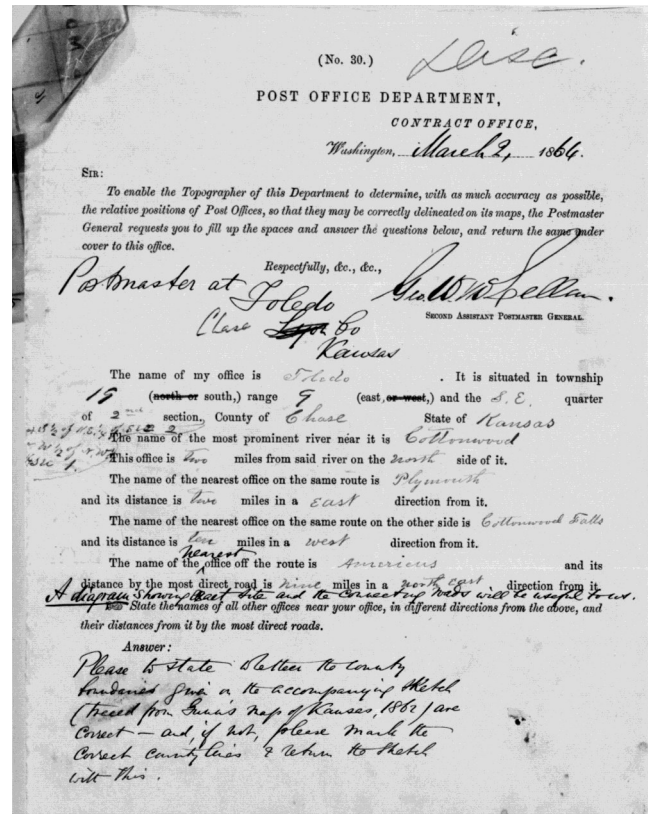 (No. 30.)
Disc.
POST OFFICE DEPARTMENT,
CONTRACT OFFICE,
Washington, March 2, 1864.
SIR:
To enable the Topographer of this Department to determine, with as much accuracy as possible,
the relative positions of Post Offices, so that they may be correctly delineated on its maps, the Postmaster
General requests you to fill up the spaces and answer the questions below, and return the same under
cover to this office.
Respectfully, &c., &c.,
Postmaster at
Toledo
Geo. W. McLellan.
SECOND ASSISTANT POSTMASTER GENERAL.
Chase Lyon Co
Kansas
The name of my office is Toledo . It is situated in township
19 (north or south,) range 9 (east, or west,) and the S. E. quarter
of 2nd section, County of Chase State of Kansas
The name of the most prominent river near it is Cottonwood
This office is two miles from said river on the north side of it.
The name of the nearest office on the same route is Plymouth
and its distance is two miles in a east direction from it.
The name of the nearest office on the same route on the other side is Cottonwood Falls
and its distance is ten miles in a west direction from it.
nearest
The name of the office off the route is Americus and its
distance by the most direct road is nine miles in a north east direction from it.
A diagram showing exact site and the connecting roads will be useful to us.
State the names of all other offices near your office, in different directions from the above, and
their distances from it by the most direct roads.
Answer:
Please to state whether the county
boundaries given on the accompanying sketch
(traced from Gunn's map of Kansas, 1862) are
correct — and, if not, please mark the
correct county lines & return the sketch
with this.